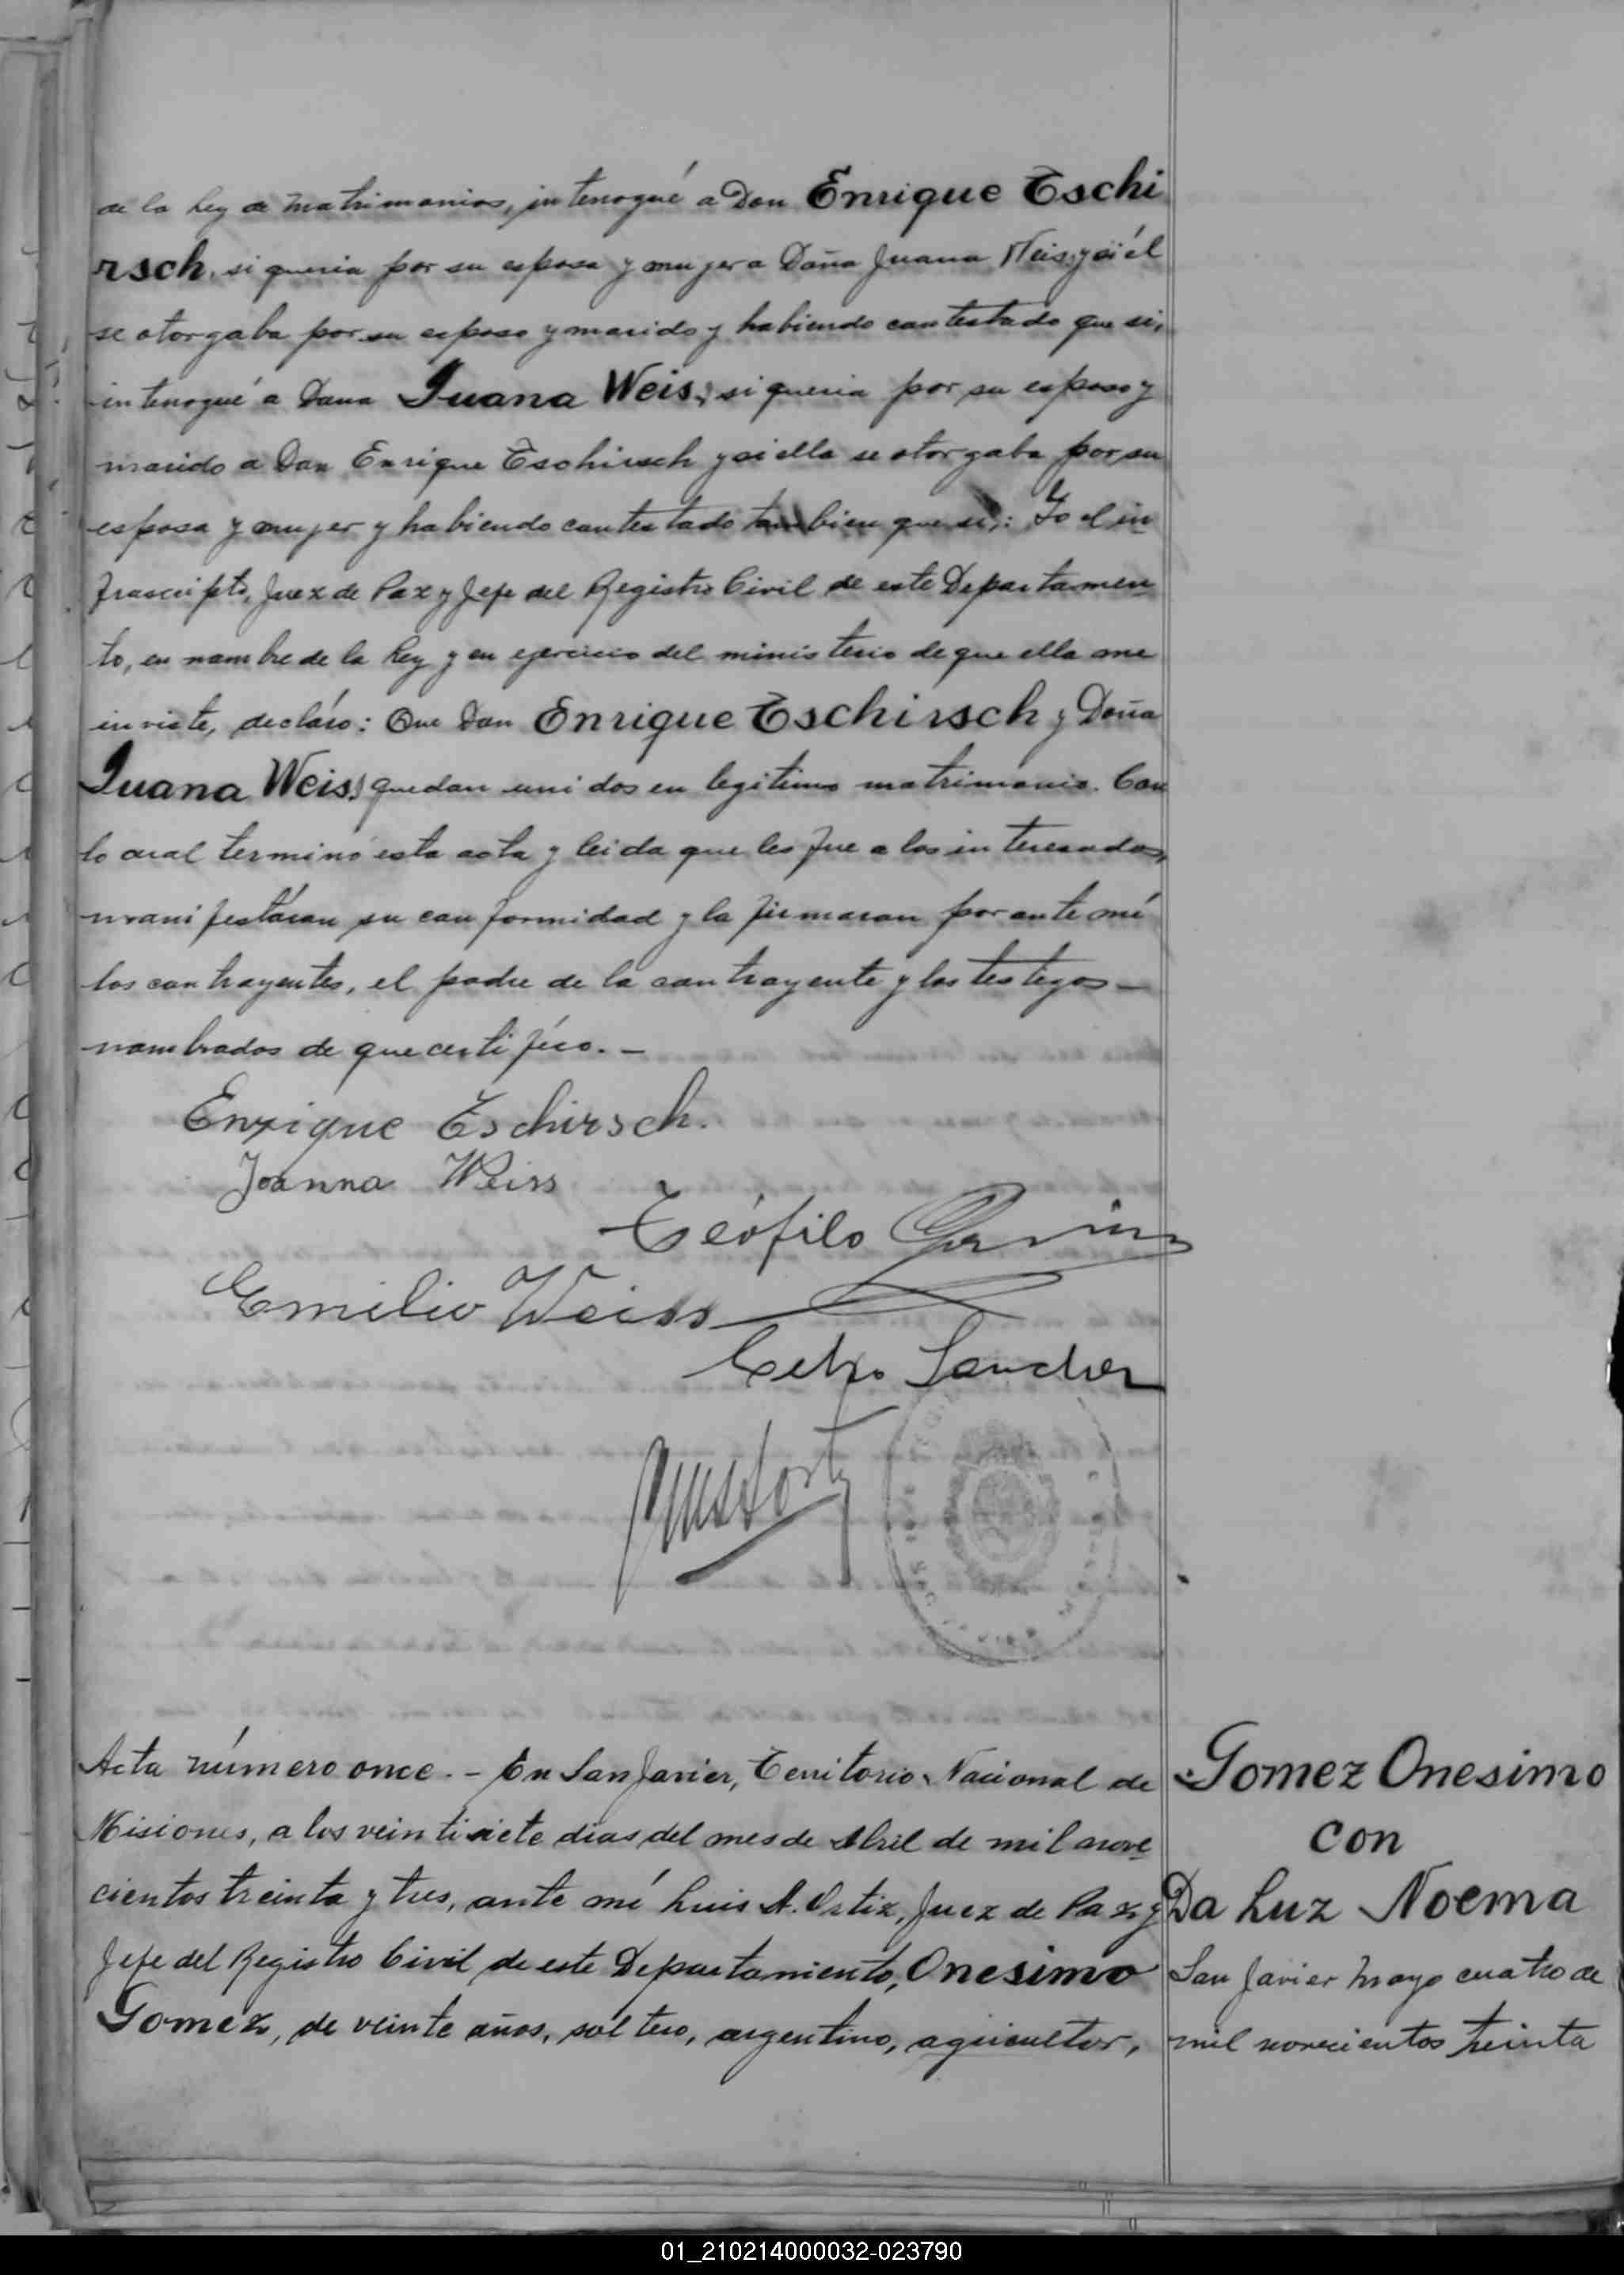 de la Ley de Matrimonios, interrogué a Don Enrique Eschi
rsch, si queria por su esposa y mujer a Doña Juana Weiss y si él
se otorgaba por su esposo y marido y habiendo contestado que si,
interrogué a Dona Juana Weiss, si queria por su esposo y
marido a Don Enrique Eschirsch y si ella se otorgaba por su
esposa y mujer y habiendo contestado tambien que si,: Yo el in
frascripto, Juez de Paz y Jefe del Registro Civil de este Departamen
to, en nombre de la Ley y en ejercicio del ministerio de que ella me
inviste, decláro: Que Don Enrique Eschirsch y Doña
Juana Weiss, quedan unidos en legitimo matrimonio. Con
lo cual terminó esta acta y leida que les fue a los interesados,
manifestáran su conformidad y la firmaron por ante mí
los contrayentes, el padre de la contrayente y los testigos —
nombrados de que certifíco. —
Enrique Eschirsch.
Joanna Weiss
Teófilo
Emilio Weiss
Celso Sanchez
Acta número once. - En San Javier, Territorio Nacional de
Misiones, a los veintisiete dias del mes de Abril de mil nove
cientos treinta y tres, ante mí Luis A. Ortiz, Juez de Paz y
Jefe del Registro Civil de este Departamiento, Onesimo
Gomez, de veinte años, soltero, argentino, agricultor,
Gomez Onesimo
con
Da Luz Noema
San Javier Mayo cuatro de
mil novecientos treinta
01_210214000032-023790